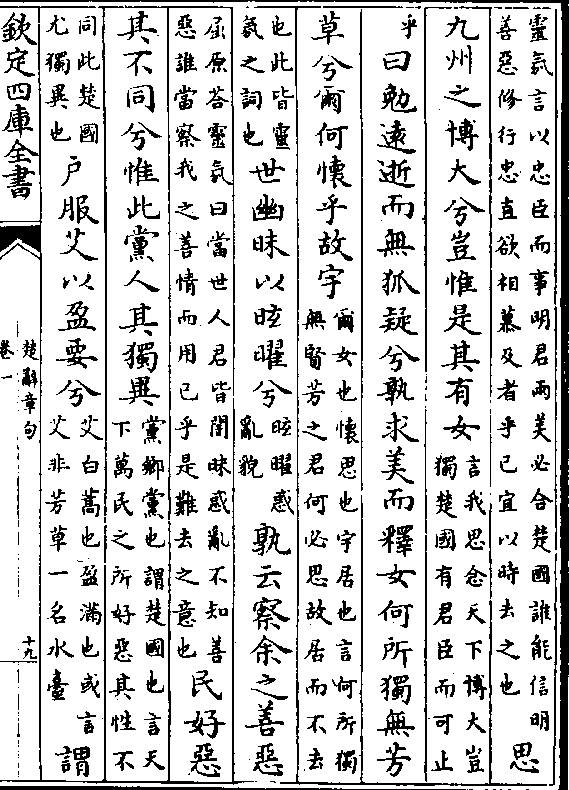 靈氛言以忠臣而事明君兩美必合楚國誰能信明
善惡修行忠直欲相慕及者乎己宜以時去之也
思
九州之博大兮豈惟是其有女
言我思念天下博大豈
獨楚國有君臣而可止
乎
曰勉遠逝而無狐疑兮孰求美而釋女何所獨無芳
草兮爾何懷乎故宇
爾女也懷思也宇居也言何所獨
無賢芳之君何必思故居而不去
也此皆靈
氛之詞也
世幽昧以眩曜兮
眩曜惑
亂貌
孰云察余之善惡
屈原答靈氛曰當世人君皆闇昧惑亂不知善
惡誰當察我之善情而用己乎是難去之意也
民好惡
其不同兮惟此黨人其獨異
黨鄉黨也謂楚國也言天
下萬民之所好惡其性不
同此楚國
尤獨異也
户服艾以盈要兮
艾白蒿也盈滿也或言
艾非芳草一名水臺
謂
欽定四庫全書
楚辭章句
卷一
十九